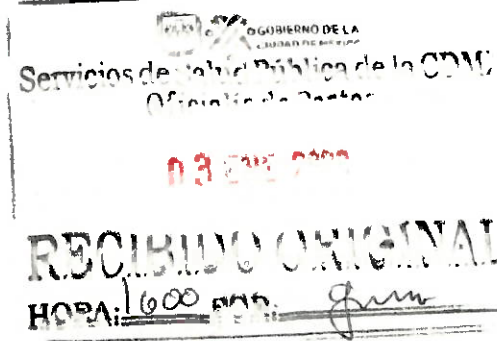 GOBIERNO DE LA
CIUDAD DE MÉXICO
Servicios de Salud Pública de la CDMX
Oficialía de Partes
03 ENE
RECIBIDO ORIGINAL
HORA: 1600 POR: